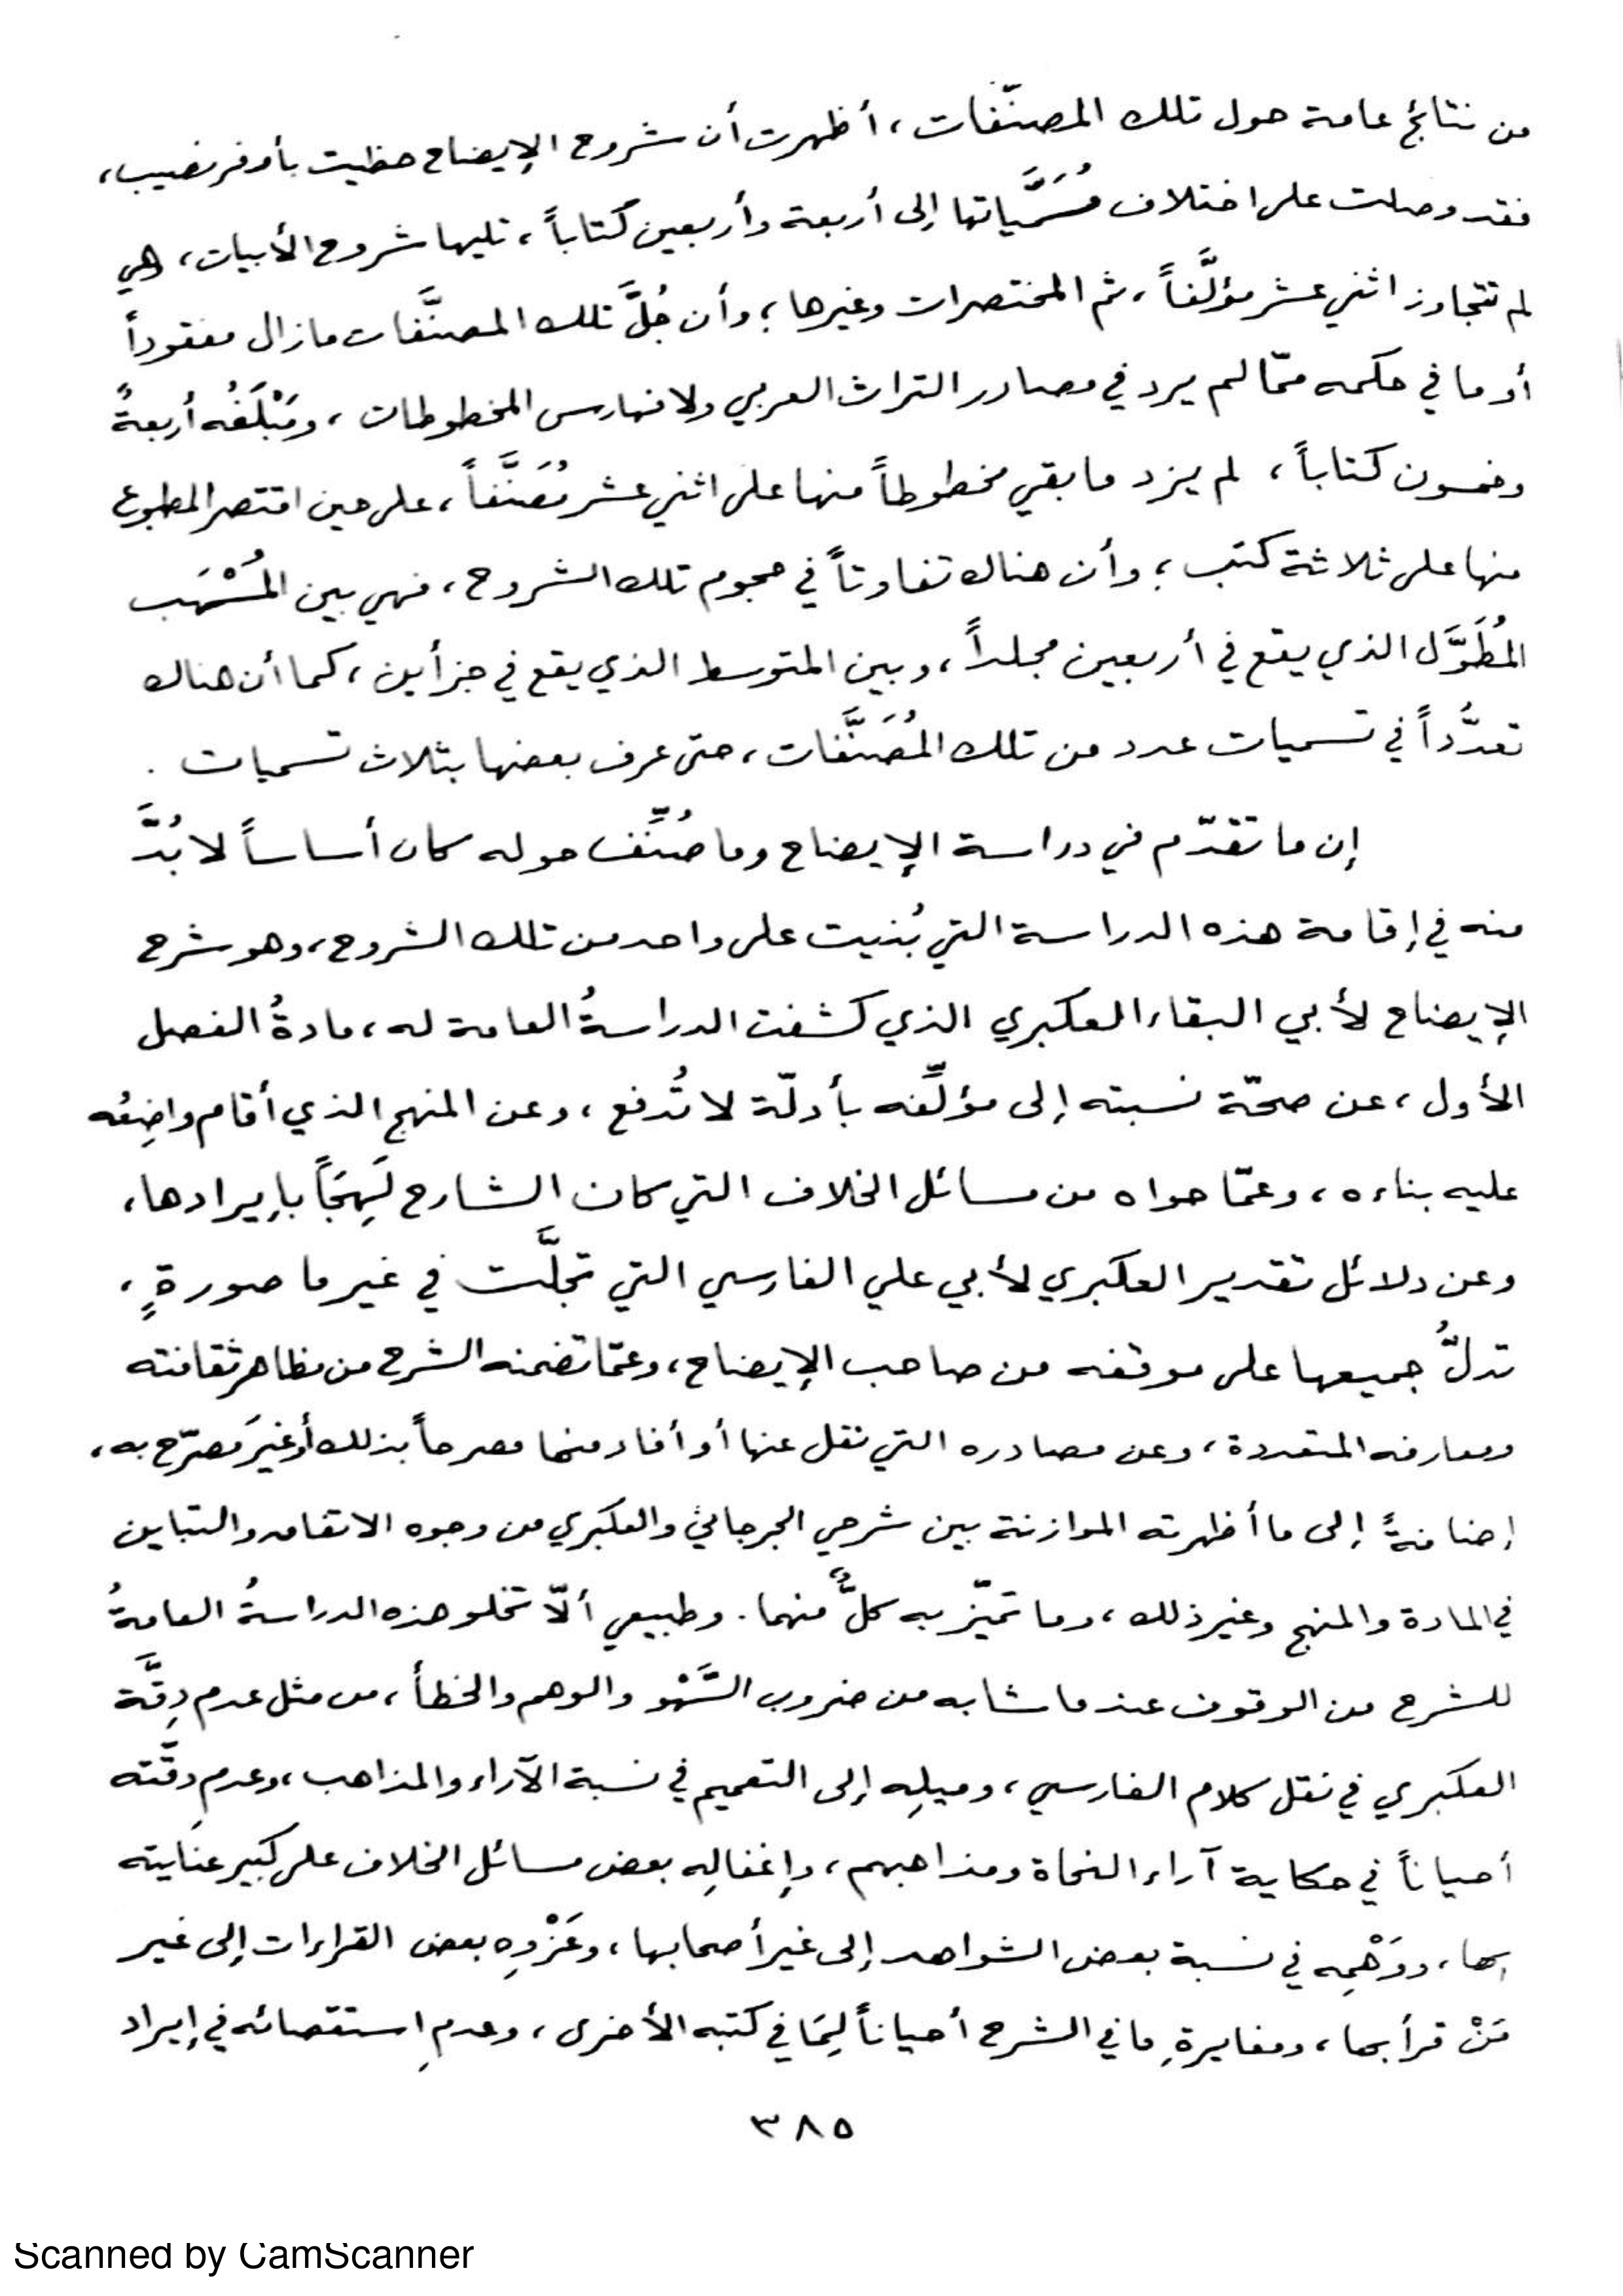 من نتائج عامة حول تلك المصنّفات، أظهرت أن شروح الإيضاح حظيت بأوفر نصيب،
فقد وصلت على اختلاف مُسَمَّياتها إلى أربعة وأربعين كتاباً، تليها شروح الأبيات، هي
لم تتجاوز اثني عشر مؤلَّفاً، ثم المختصرات وغيرها؛ وأن جُلَّ تلك المصنَّفات مازال مفقوداً
أو ما في حكمه ممّا لم يرد في مصادر التراث العربي ولا فهارس المخطوطات، ومَبْلَغُه أربعةٌ
وخمسون كتاباً، لم يزد ما بقي مخطوطاً منها على اثني عشر مُصَنَّفاً، على حين اقتصر المطبوع
منها على ثلاثة كتب؛ وأن هناك تفاوتاً في حجوم تلك الشروح، فهي بين المُسْهَب
المُطَوَّل الذي يقع في أربعين مجلداً، وبين المتوسط الذي يقع في جزأين، كما أن هناك
تعدُّداً في تسميات عدد من تلك المُصَنَّفات، حتى عرف بعضها بثلاث تسميات .
إن ما تقدّم في دراسة الإيضاح وما صُنِّف حوله كان أساساً لا بُدَّ
منه في إقامة هذه الدراسة التي بُنيت على واحد من تلك الشروح، وهو شرح
الإيضاح لأبي البقاء العكبري الذي كشفت الدراسةُ العامة له، مادةُ الفصل
الأول، عن صحّة نسبته إلى مؤلِّفه بأدلّة لا تُدفع، وعن المنهج الذي أقام واضِعُه
عليه بناءه، وعمّا حواه من مسائل الخلاف التي كان الشارح لَهِجَاً بإيرادها،
وعن دلائل تقدير العكبري لأبي علي الفارسي التي تجلَّت في غير ما صورةٍ،
تدلُّ جميعها على موقفه من صاحب الإيضاح، وعمّا تضمنه الشرح من مظاهر ثقافته
ومعارفه المتعددة، وعن مصادره التي نقل عنها أو أفاد منها مصرحاً بذلك أو غيرَ مصرّح به،
إضافةً إلى ما أظهرته الموازنة بين شرحي الجرجاني والعكبري من وجوه الاتفاق والتباين
في المادة والمنهج وغير ذلك، وما تميّز به كلٌّ منهما. وطبيعي ألّا تخلو هذه الدراسةُ العامةُ
للشرح من الوقوف عند ما شابه من ضروب السَّهْو والوهم والخطأ، من مثل عدم دِقَّة
العكبري في نقل كلام الفارسي، وميلِه إلى التعميم في نسبة الآراء والمذاهب، وعدمِ دقّته
أحياناً في حكاية آراء النحاة ومذاهبهم، وإغفالِه بعض مسائل الخلاف على كبير عنايته
بها، ووَهْمِه في نسبة بعض الشواهد إلى غير أصحابها، وعَزْوِه بعض القراءات إلى غير
مَنْ قرأ بها، ومغايرةِ ما في الشرح أحياناً لِمَا في كتبه الأخرى، وعدمِ استقصائه في إيراد
٣٨٥
Scanned by CamScanner